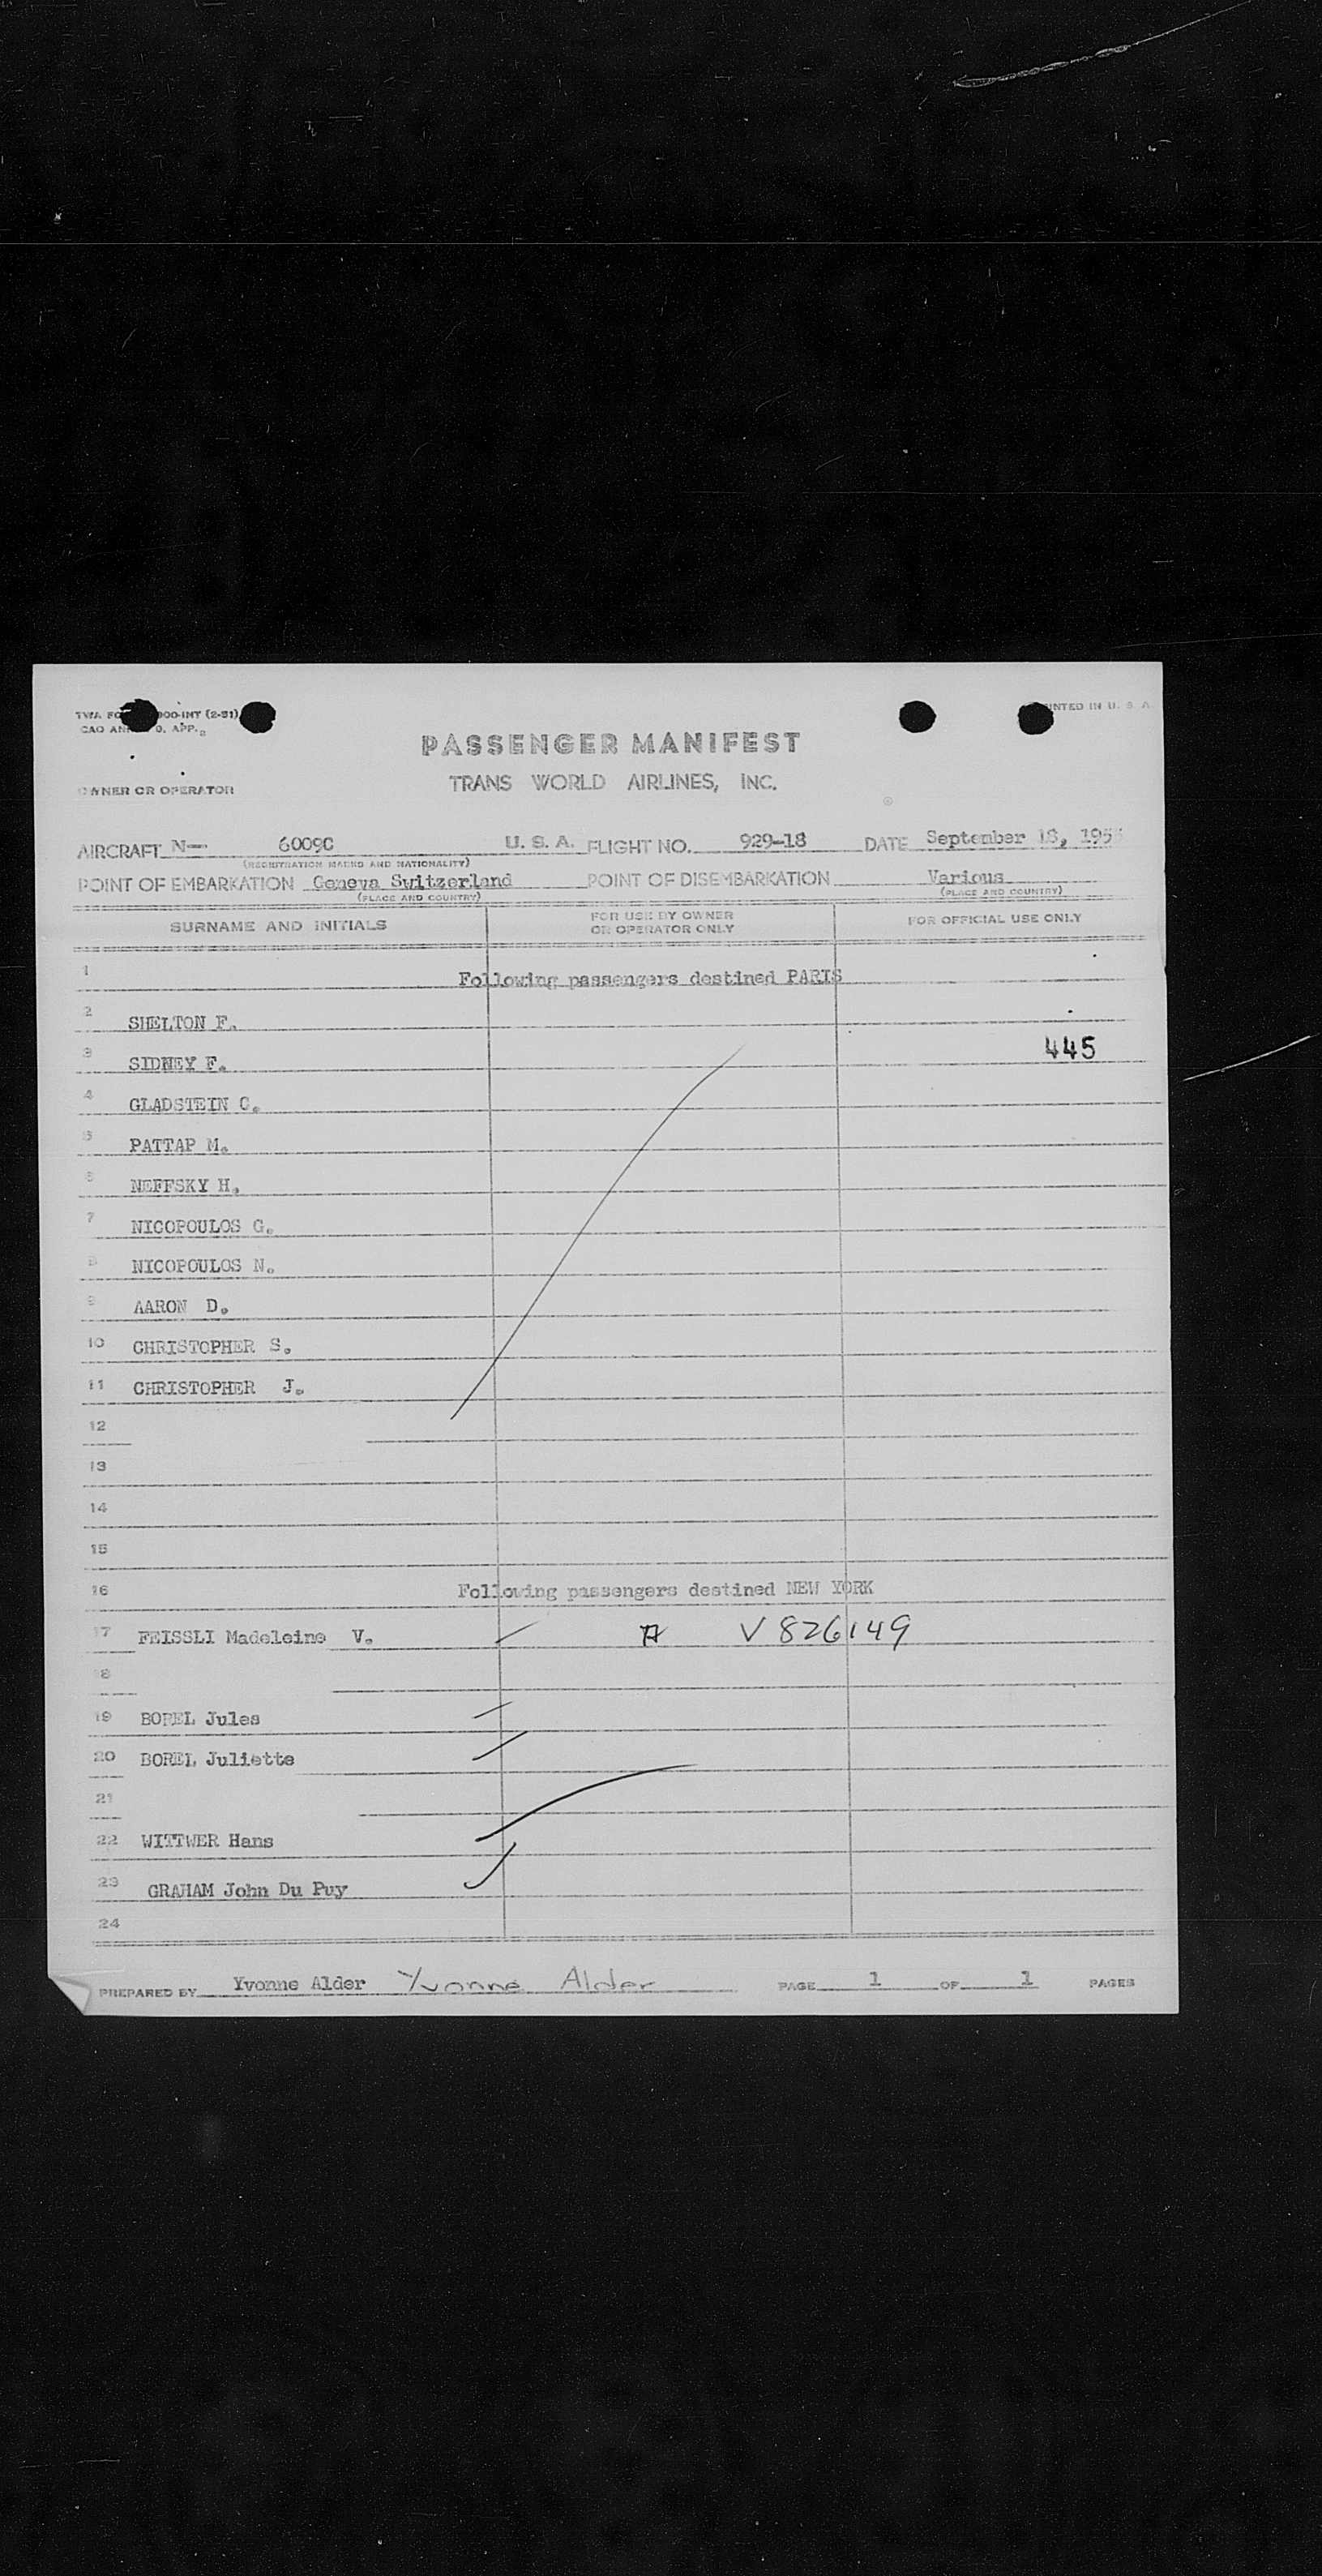 TWA FO 900-INT (2-51)
CAO AN 9. APP. 2
PRINTED IN U. S. A.
PASSENGER MANIFEST
OWNER OR OPERATOR TRANS WORLD AIRLINES, INC.
AIRCRAFT N- 6009C U. S. A. FLIGHT NO. 929-18 DATE September 18, 195
(REGISTRATION MARKS AND NATIONALITY)
POINT OF EMBARKATION Geneva Switzerland POINT OF DISEMBARKATION Various
(PLACE AND COUNTRY) (PLACE AND COUNTRY)
SURNAME AND INITIALS FOR USE BY OWNER OR OPERATOR ONLY FOR OFFICIAL USE ONLY
1 Following passengers destined PARIS
2 SHELTON F.
3 SIDNEY F. 445
4 GLADSTEIN C.
5 PATTAP M.
6 NEFFSKY H.
7 NICOPOULOS G.
8 NICOPOULOS N.
9 AARON D.
10 CHRISTOPHER S.
11 CHRISTOPHER J.
12
13
14
15
16 Following passengers destined NEW YORK
17 FEISSLI Madeleine V. V 826149
18
19 BOREL Jules
20 BOREL Juliette
21
22 WITTWER Hans
23 GRAHAM John Du Puy
24
PREPARED BY Yvonne Alder Yvonne Alder PAGE 1 OF 1 PAGES